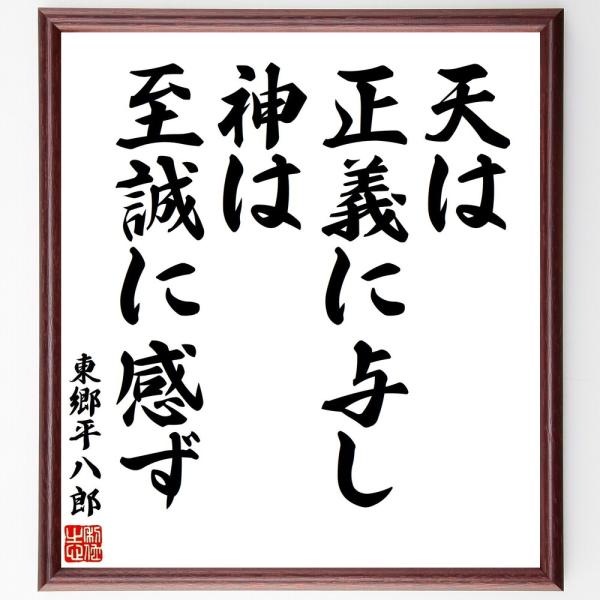 天は
正義に与し
神は
至誠に感ず
東郷平八郎